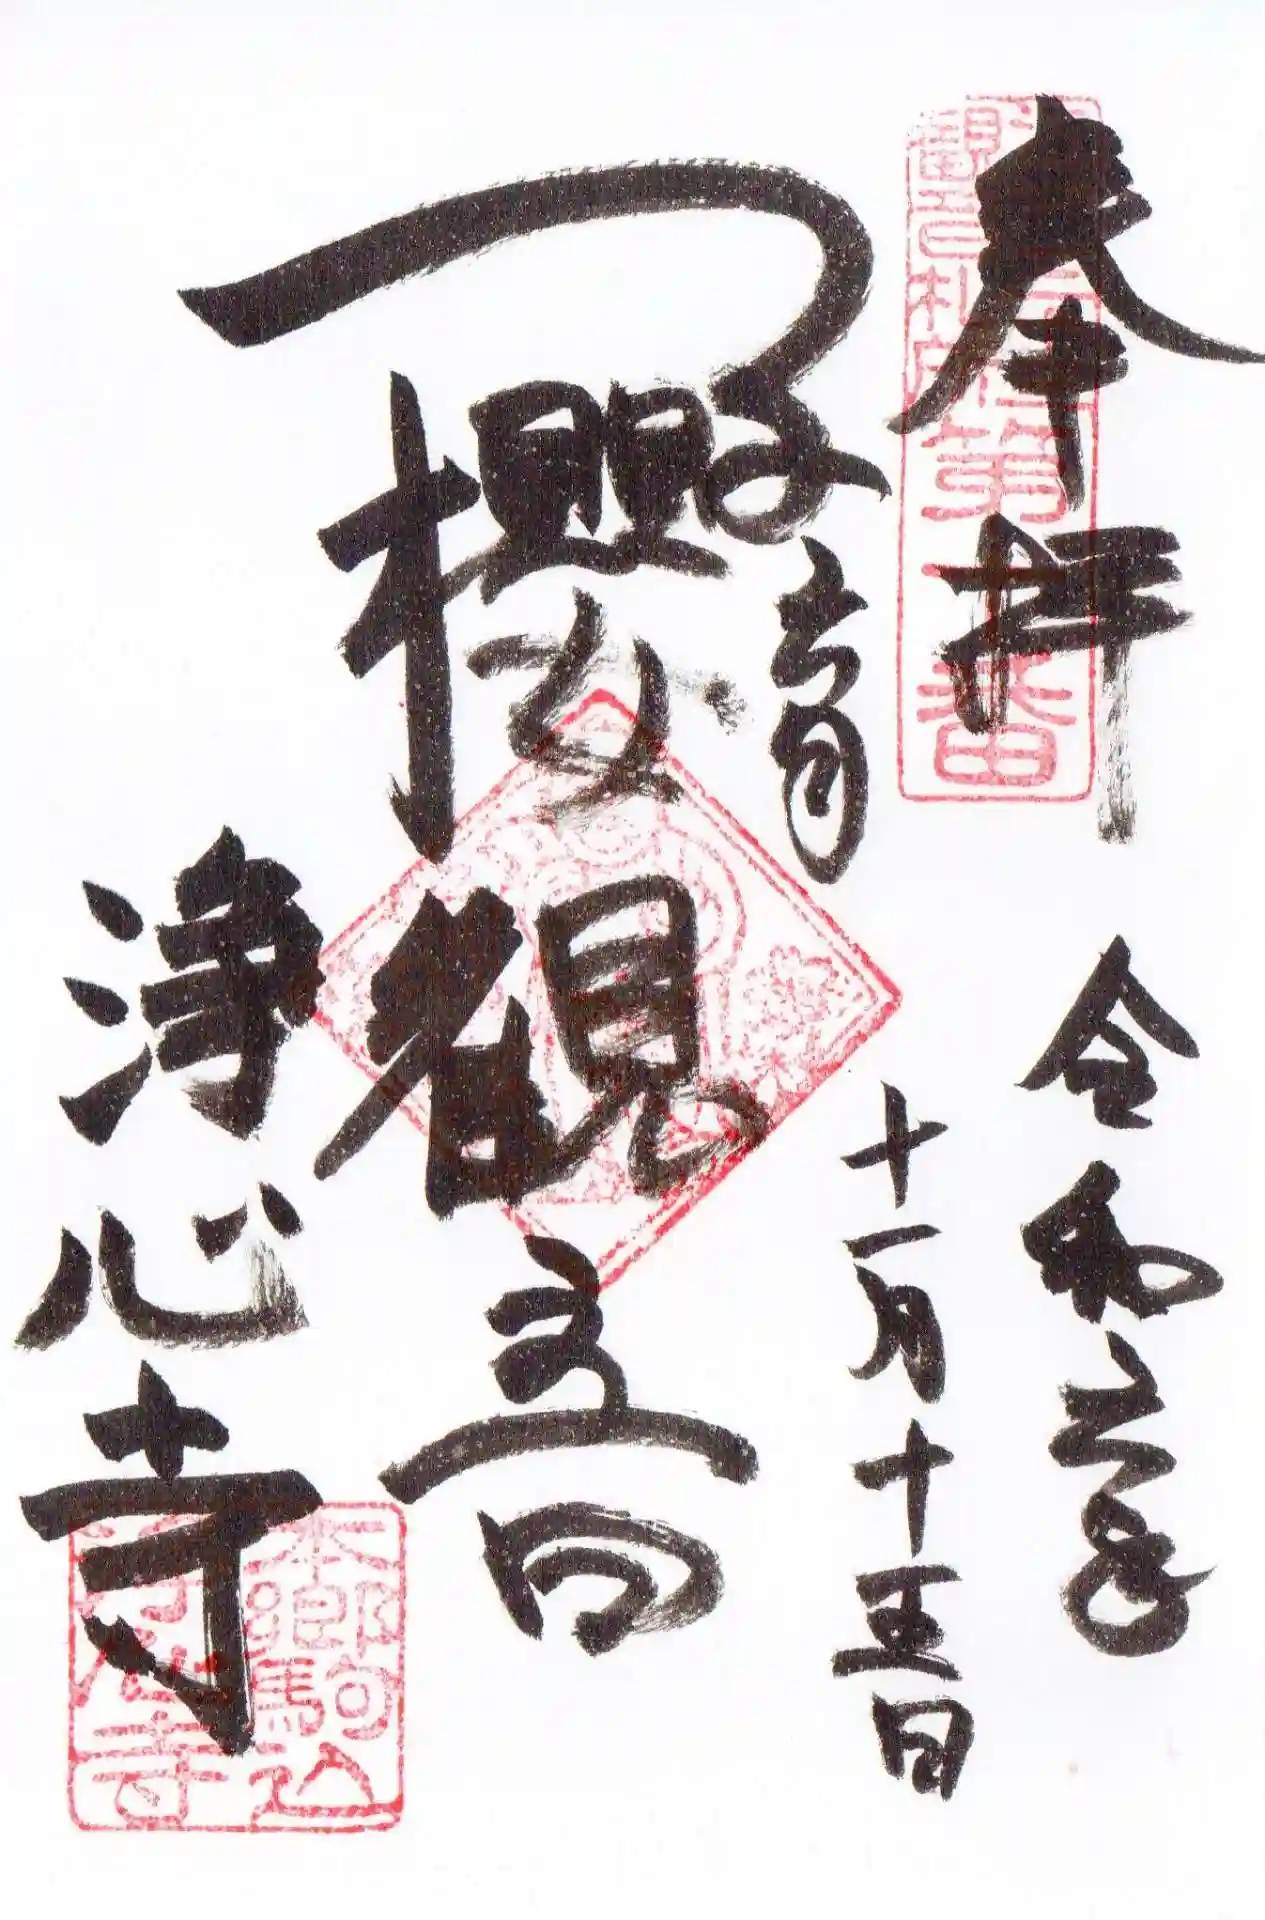 奉拝
令和六年
十一月十五日
子育
櫻観音
浄心寺
観音札所第十番
本郷駒込
浄心寺